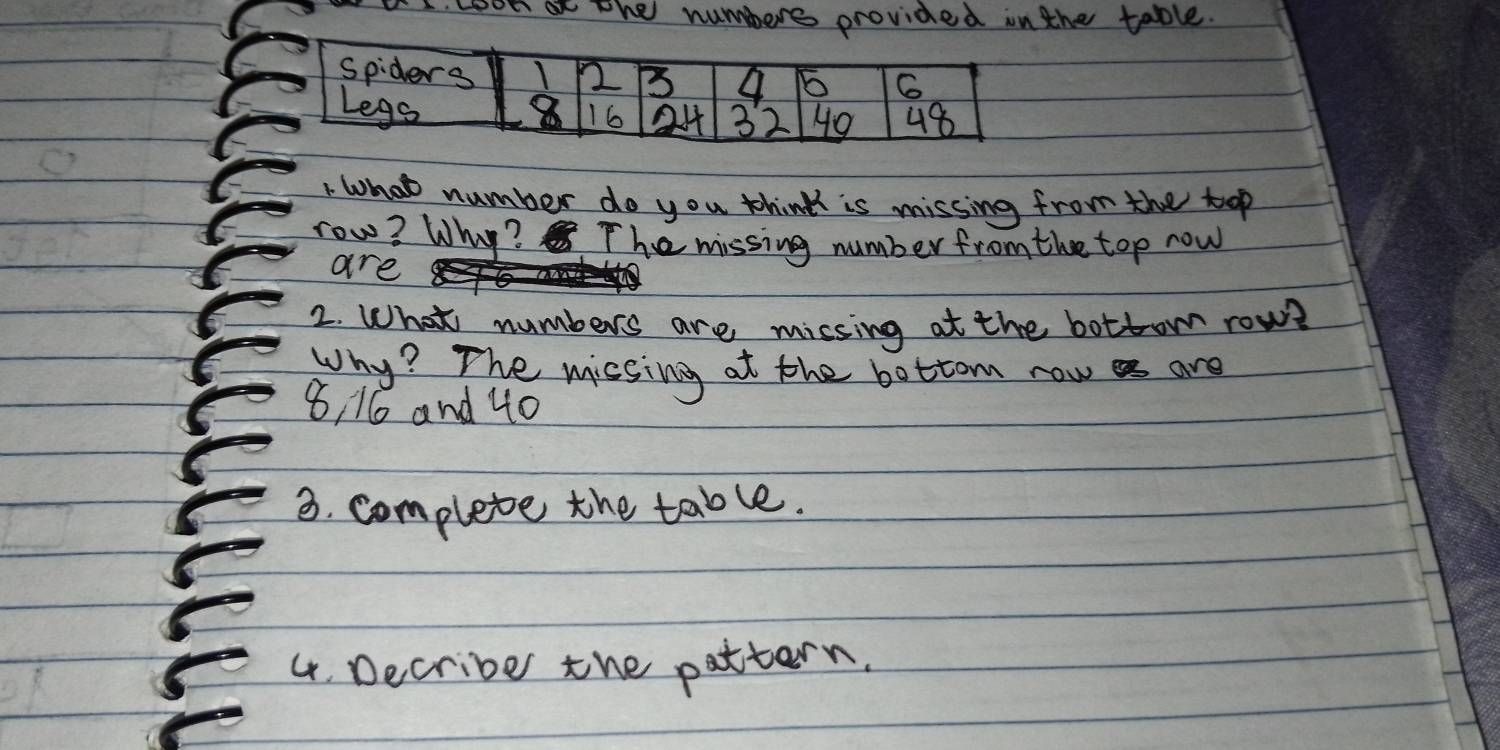 Look at the numbers provided in the table.
Spiders 1 2 3 4 5 6
Legs 8 16 24 32 40 48
1. What number do you think is missing from the top
row? Why? The missing number from the top row
are
2. What numbers are missing at the bottom row?
Why? The missing at the bottom row are
8, 16 and 40
3. Complete the table.
4. Decribe the pattern.